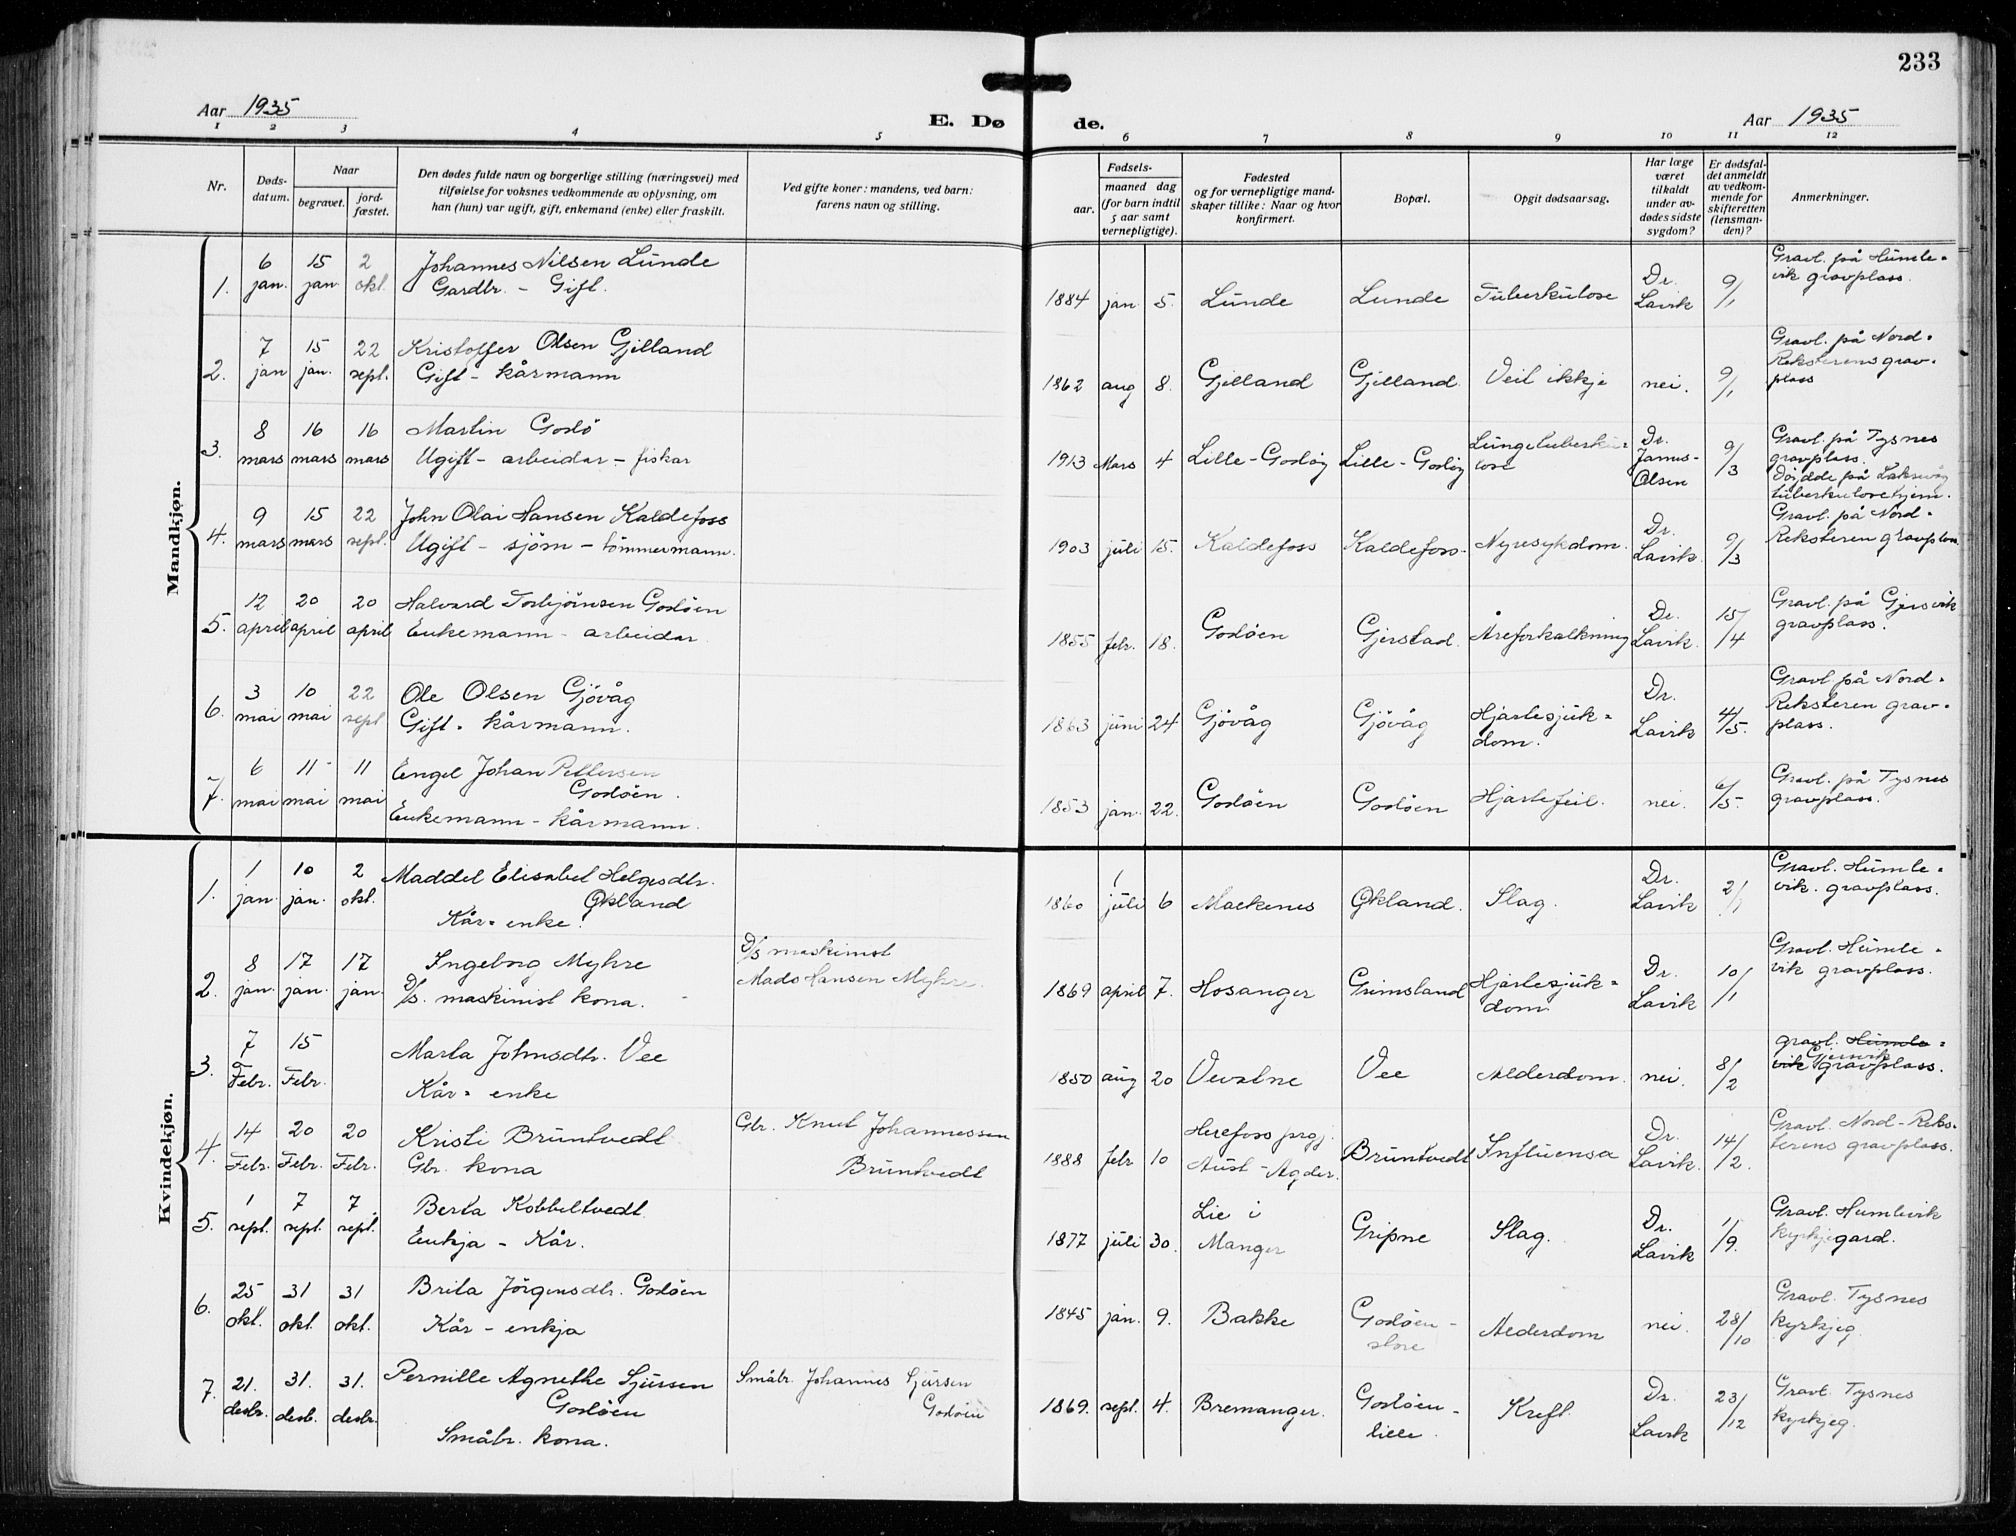 233
Aar 1935
E. Dø
de.
Aar 1935
1 2 3 4 5 6 7 8 9 10 11 12
Nr.
Døds-
datum.
Naar
begravet.
jord-
fæstet.
Den dødes fulde navn og borgerlige stilling (næringsvei) med
tilføielse for voksnes vedkommende av oplysning, om
han (hun) var ugift, gift, enkemand (enke) eller fraskilt.
Ved gifte koner: mandens, ved barn:
farens navn og stilling.
Fødsels-
aar.
maaned dag
(for barn indtil
5 aar samt
vernepligtige).
Fødested
og for vernepligtige mand-
skaper tillike: Naar og hvor
konfirmert.
Bopæl.
Opgit dødsaarsag.
Har læge
været
tilkaldt
under av-
dødes sidste
sygdom?
Er dødsfal-
det anmeldt
av vedkom-
mende for
skifteretten
(lensman-
den)?
Anmerkninger.
Mandkjøn.
1. 6 jan. 15 jan. 2 okt. Johannes Nilsen Lunde
Gardbr. - Gift.
1884 jan. 5. Lunde Lunde Tuberkulose Dr. Lavik 9/1
Gravl. på Humle-
vik gravplass.
2. 7 jan 15 jan. 22 sept. Kristoffer Olsen Gjilland
Gift - kårmann
1862 aug 8. Gjilland Gjilland. Veil ikkje nei. 9/1
Gravl. på Nord-
Reksterens grav-
plass
3. 8 mars 16 mars 16 mars Martin Godø
Ugift - arbeidar - fiskar
1913 Mars 4 Lille-Godøy Lille-Godøy Lungetuberku-
lose
Dr.
Janus-
Olsen
9/3
Gravl. på Tysnes
gravplass.
Døydde på Laksevåg
tuberkulosehjem.
4. 9 mars 15 mars 22 sept. John Olai Hansen Kaldefoss
Ugift - sjøm - tømmermann.
1903 juli 15. Kaldefoss Kaldefoss. Nyresykdom. Dr. Lavik. 9/3
Gravl. på Nord-
Reksteren gravplass.
5. 12 april 20 april 20 april Halvard Torbjørnsen Godøen
Enkemann - arbeidar.
1855 febr. 18. Godøen Gjerstad. Åreforkalkning Dr. Lavik. 15/4
Gravl. på Gjersvik
gravplass.
6. 3 mai 10 mai 22 sept Ole Olsen Gjøvåg
Gift. kårmann.
1863 juni 24 Gjøvåg Gjøvåg Hjartesjuk-
dom.
Dr. Lavik 4/5.
Gravl på Nord-
Reksteren grav-
plass.
7. 6 mai 11 mai 11 mai Engel Johan Pettersen
Godøen.
Enkemann - kårmann.
1853 jan. 22. Godøen Godøen Hjartefeil. nei. 6/5.
Gravl. på Tysnes
gravplass.
Kvindekjøn.
1. 1 jan. 10 jan. 2 okt. Maddel Elisabet Helgesdtr.
Økland
Kår-enke.
1860 juli 6 Maekenes Økland. Slag. Dr. Lavik 2/1
Gravl. Humle-
vik. gravplass.
2. 8 jan. 17 jan. 17 jan. Ingeborg Myhre
D/s. maskinist kona.
D/s maskinist
Mads Hansen Myhre.
1869 april 7. Hosanger Grimsland Hjartesjuk-
dom.
Dr. Lavik 10/1
Gravl. Humle-
vik gravplass.
3. 7 Febr. 15 Febr. Marta Johnsdtr. Vee
Kår-enke
1850 aug 20 Vee Alderdom. nei. 8/2
gravl. Humle-
vik Gjersvik gravplass.
4. 14 Febr. 20 Febr. 20 Febr. Kristi Bruntvedt
Gbr. kona
Gbr. Knut Johannessen
Bruntvedt
1888 febr 10 Herefoss prgj.
Aust-Agder.
Bruntvedt Influensa Dr. Lavik. 14/2.
Gravl. Nord-Reks-
terens gravplass.
5. 1 sept. 7 sept 7. sept. Berta Kobbeltvedt
Enkja - Kår.
1877 juli 30. Lie i
Manger
Gripne Slag. Dr. Lavik 1/9.
Gravl. Humlevik
kyrkjegard.
6. 25 okt. 31 okt. 31 okt. Brita Jørgensdtr. Godøen
Kår - enkja
1845 jan. 9. Bakke Godøen-
store
Alderdom nei. 28/10
Gravl. Tysnes
kyrkjeg.
7. 21. desbr. 31. desb. 31. desbr. Pernille Agnethe Sjursen
Godøen
Småbr. kona.
Småbr. Johannes Sjursen
Godøen
1869. sept. 4. Bremanger. Godøen-
lille.
Kreft. Dr. Lavik 23/12
Gravl. Tysnes
kyrkjeg.